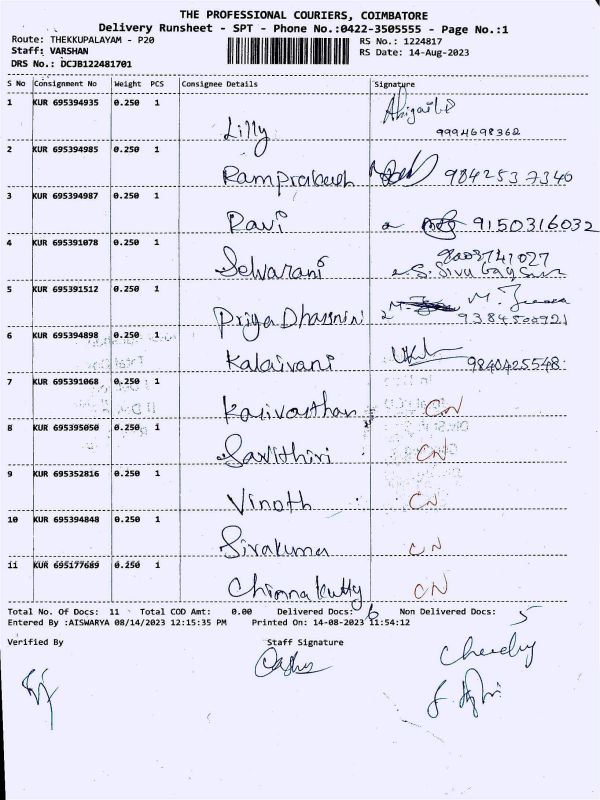 THE PROFESSIONAL COURIERS, COIMBATORE
Delivery Runsheet - SPT - Phone No.:0422-3505555 - Page No.:1
Route: THEKKUPALAYAM - P20 RS No.: 1224817
Staff: VARSHAN RS Date: 14-Aug-2023
DRS No.: DCJB122481701
S No Consignment No Weight PCS Consignee Details Signature
1 KUR 695394935 0.250 1
Lilly 9994698362
2 KUR 695394985 0.250 1
Ramprakash 9842537340
3 KUR 695394987 0.250 1
Ravi 9150316032
4 KUR 695391078 0.250 1
Selvarani
5 KUR 695391512 0.250 1
Priya Dharsini
6 KUR 695394898 0.250 1
Kalaivani 9840425548
7 KUR 695391068 0.250 1
CN
8 KUR 695395050 0.250 1
Savithiri CN
9 KUR 695352816 0.250 1
Vinoth CN
10 KUR 695394848 0.250 1
Sivakumar CN
11 KUR 695177689 0.250 1
Chinnakutty CN
Total No. Of Docs: 11 Total COD Amt: 0.00 Delivered Docs: 6 Non Delivered Docs: 5
Entered By :AISWARYA 08/14/2023 12:15:35 PM Printed On: 14-08-2023 11:54:12
Verified By Staff Signature